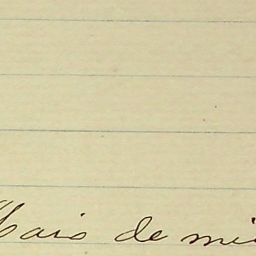 Maio de mi